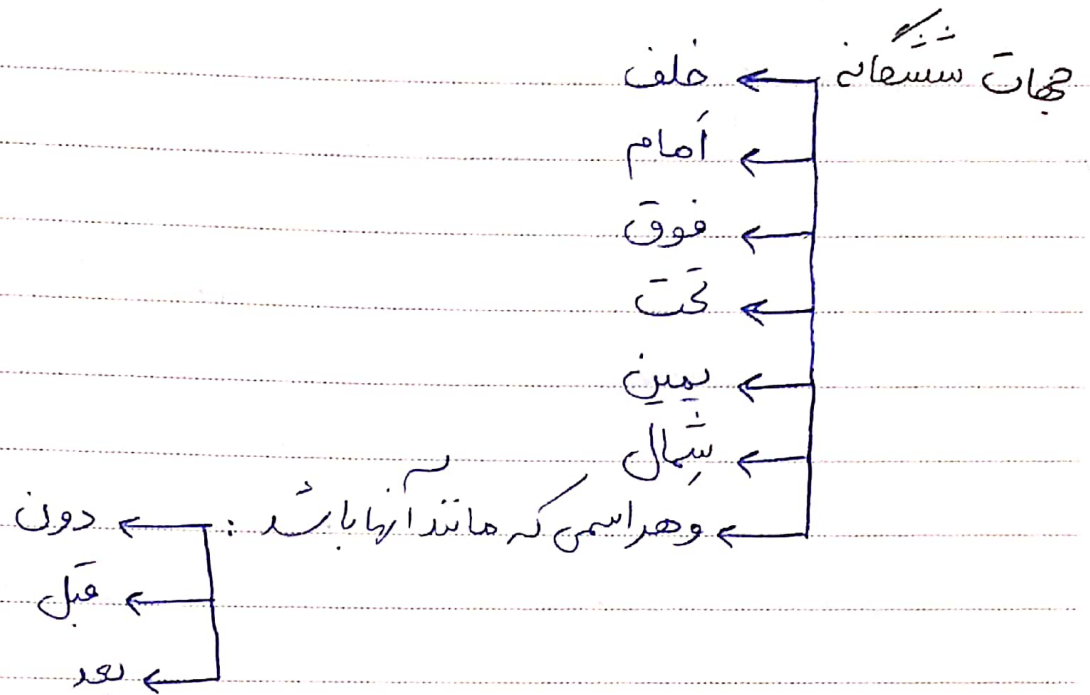 جهات ششگانه ← خلف
← أَمام
← فوق
← تحت
← یمین
← شِمال
← وهر اسمی که مانند آنها باشد : ← دون
← قبل
← بعد